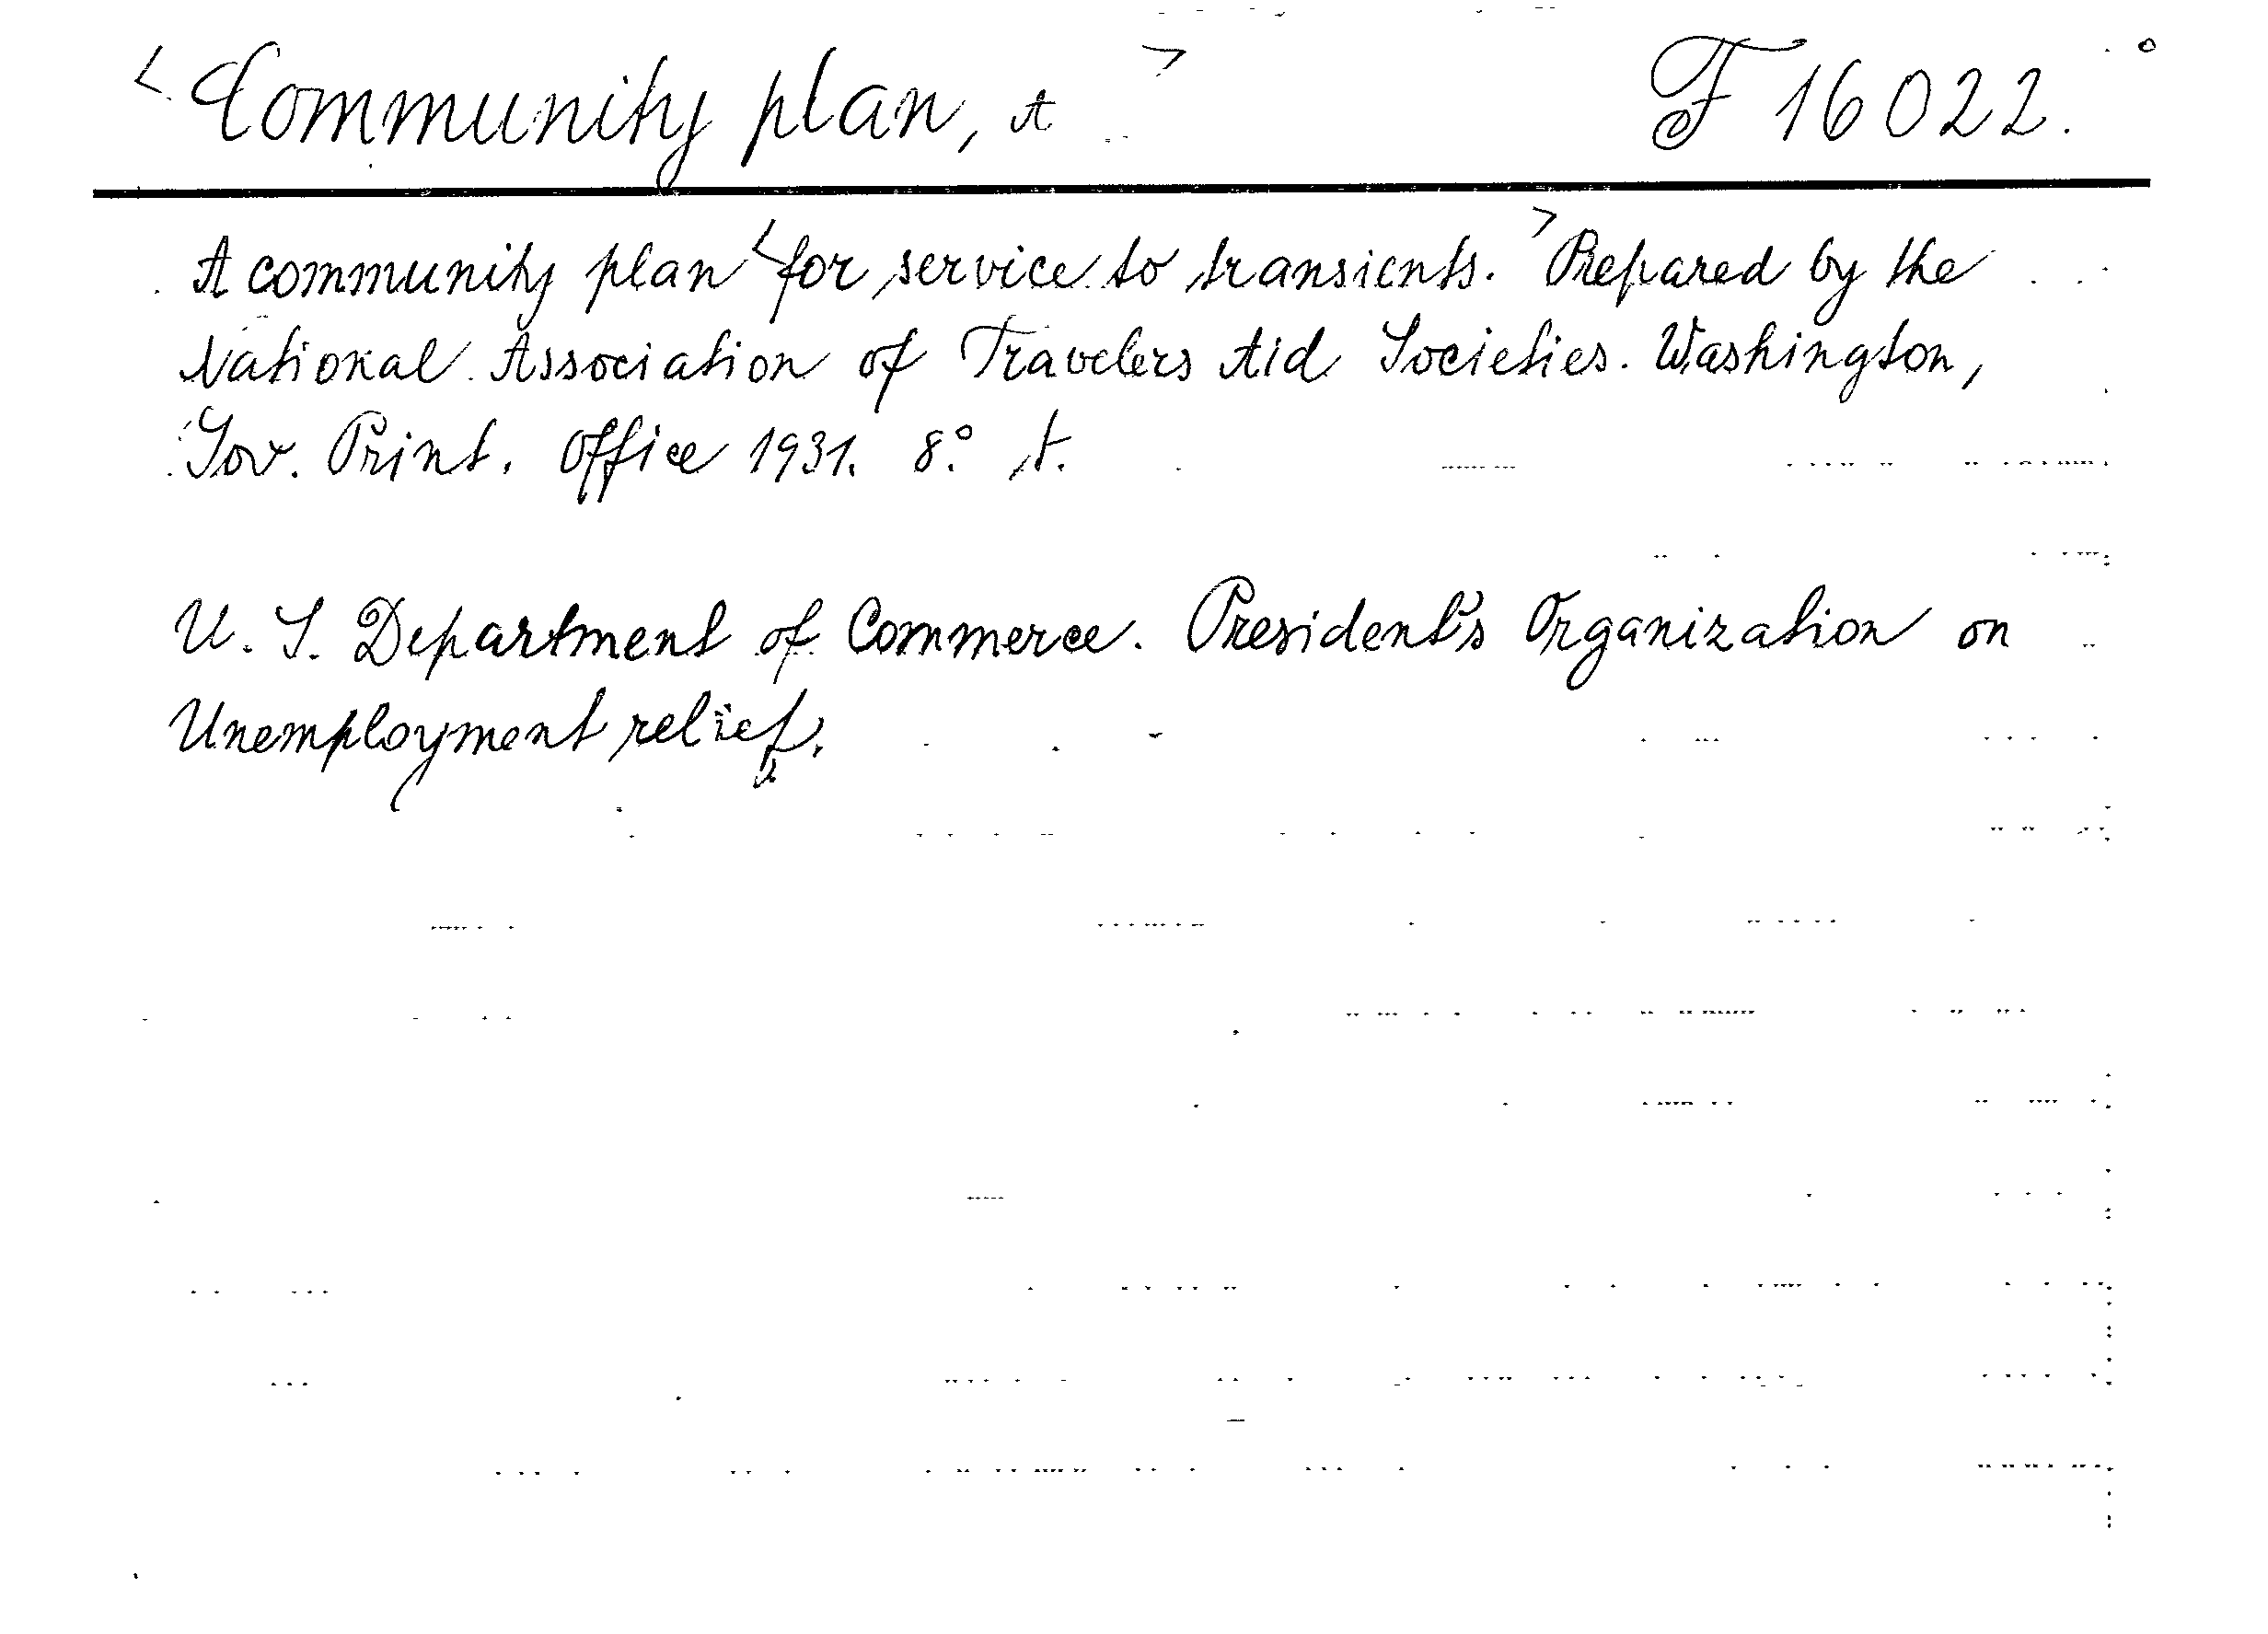 < Community plan, A > F 16022.
A community plan < for service to transients. > Prepared by the
National Association of Travelers Aid Societies. Washington,
Gov. Print. Office 1931. 8° t.
U. S. Department of Commerce. President's Organization on
Unemployment relief.